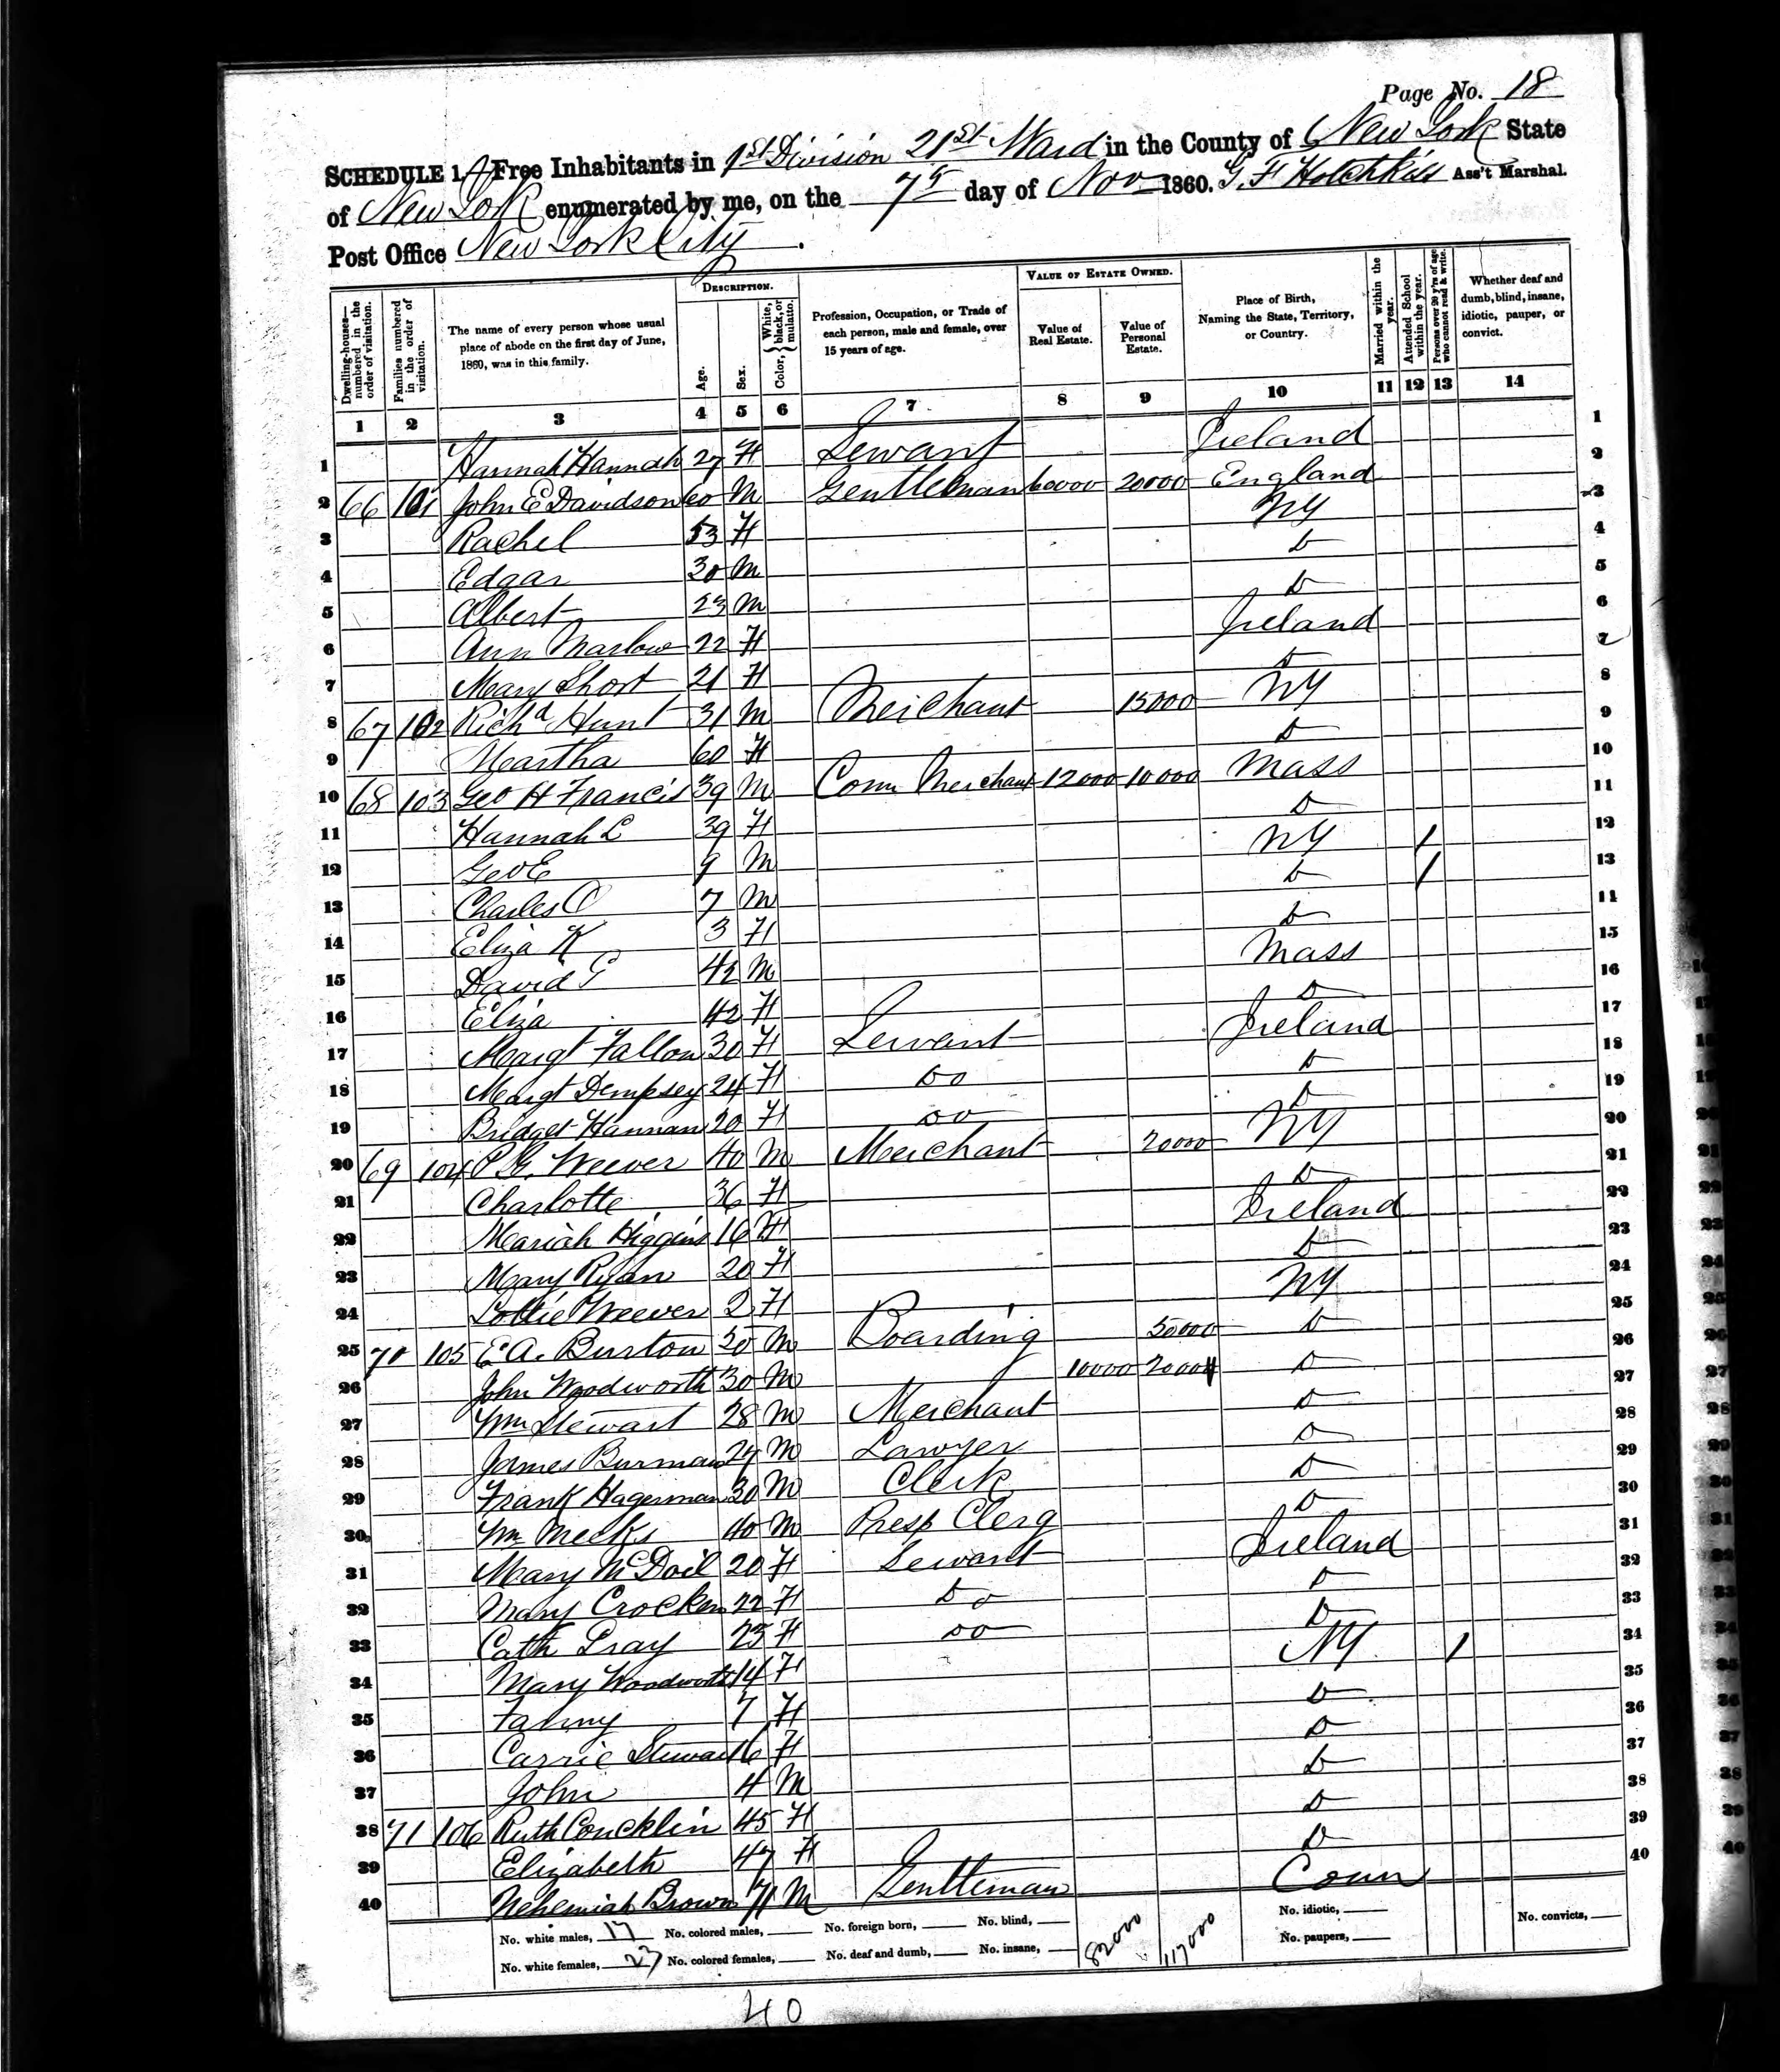 Page No. 18
SCHEDULE 1. Free Inhabitants in 1st Division 21st Ward in the County of New York State
of New York enumerated by me, on the 7th day of Nov 1860. G. F Hotchkiss Ass't Marshal.
Post Office New York City.
Dwelling-houses—numbered in the order of visitation.
Families numbered in the order of visitation.
The name of every person whose usual place of abode on the first day of June, 1860, was in this family.
DESCRIPTION.
Age.
Sex.
Color, White, black, or mulatto.
Profession, Occupation, or Trade of each person, male and female, over 15 years of age.
VALUE OF ESTATE OWNED.
Value of Real Estate.
Value of Personal Estate.
Place of Birth, Naming the State, Territory, or Country.
Married within the year.
Attended School within the year.
Persons over 20 y'rs of age who cannot read & write.
Whether deaf and dumb, blind, insane, idiotic, pauper, or convict.
1 2 3 4 5 6 7 8 9 10 11 12 13 14
1 Hannah Hannah 27 F Servant Ireland 1
2 66 101 John E Davidson 60 M Gentleman 60000 20000 England 2
3 Rachel 53 F NY 3
4 Edgar 30 M Do 4
5 Albert 23 M Do 5
6 Ann Marlow 22 F Ireland 6
7 Mary Short 21 F Do 7
8 67 102 Richd Hunt 31 M Merchant 15000 NY 8
9 Martha 60 F Do 9
10 68 103 Geo H Francis 39 M Com Merchant 12000 10000 Mass 10
11 Hannah L 39 F Do 11
12 Geo E 9 M NY 1 12
13 Charles O 7 M Do 1 13
14 Eliza K 3 F Do 14
15 David G 42 M Mass 15
16 Eliza 42 F Do 16
17 Margt Fallon 30 F Servant Ireland 17
18 Margt Dempsey 24 F Do Do 18
19 Bridget Hannan 20 F Do Do 19
20 69 104 P. G. Weever 40 M Merchant 20000 NY 20
21 Charlotte 36 F Do 21
22 Mariah Higgins 16 F Ireland 22
23 Mary Ryan 20 F Do 23
24 Lottie Weever 2 F NY 24
25 70 105 E A. Burton 30 M Boarding 50000 Do 25
26 John Woodworth 30 M 10000 2000 Do 26
27 Wm Stewart 28 M Merchant Do 27
28 James Burman 24 M Lawyer Do 28
29 Frank Hagerman 30 M Clerk Do 29
30 Wm Meeks 40 M Presp Clerg Do 30
31 Mary McDoil 20 F Servant Ireland 31
32 Mary Crocken 22 F Do Do 32
33 Cath Gray 23 F Do Do 33
34 Mary Woodworth 14 F NY 1 34
35 Fanny 7 F Do 35
36 Carrie Stewart 6 F Do 36
37 John 4 M Do 37
38 71 106 Ruth Concklin 45 F Do 38
39 Elizabeth 47 F Do 39
40 Nehemiah Brown 71 M Gentleman Conn 40
No. white males, 17 No. colored males, No. foreign born, No. blind, No. idiotic, No. convicts,
No. white females, 23 No. colored females, No. deaf and dumb, No. insane, 82000 117000 No. paupers,
40